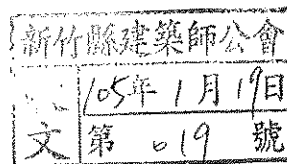 新竹縣建築師公會
105年1月19日
文
第019號